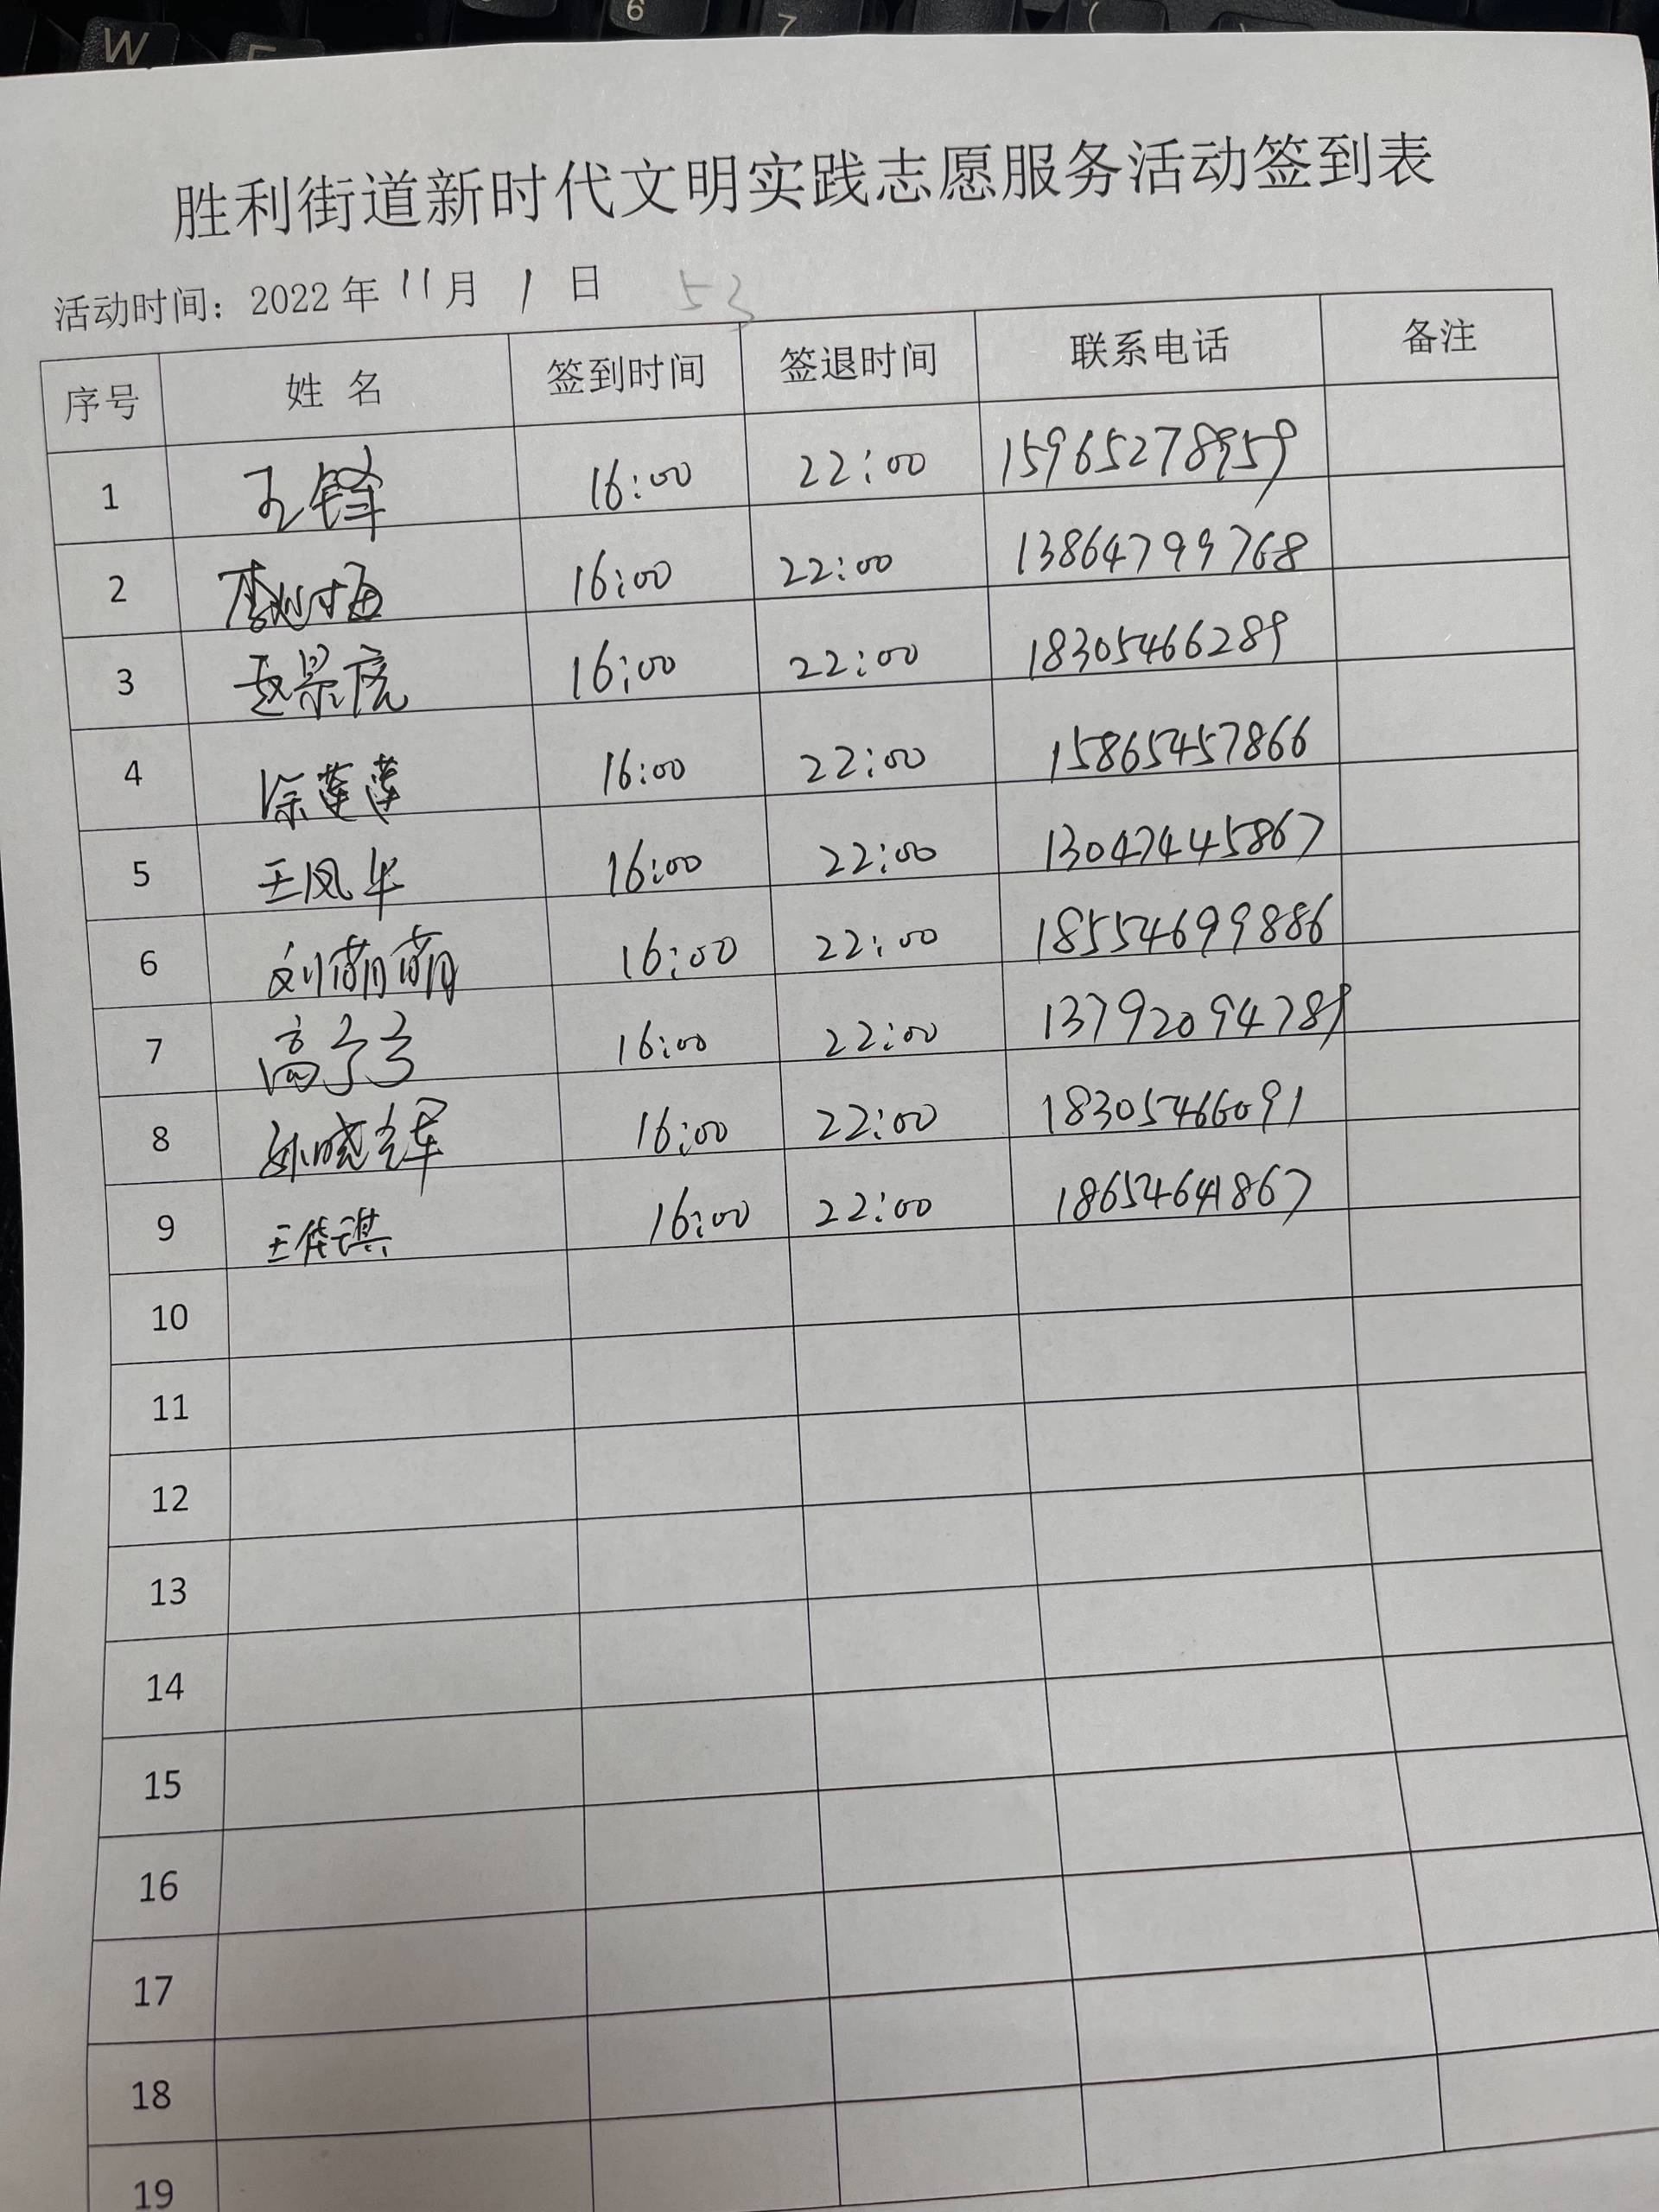 胜利街道新时代文明实践志愿服务活动签到表
活动时间：2022年 11月 1 日 53
序号 姓 名 签到时间 签退时间 联系电话 备注
1 王锋 16:00 22:00 15965278959
2 16:00 22:00 13864799768
3 赵景虎 16:00 22:00 18305466289
4 徐莲莲 16:00 22:00 15865457866
5 王凤华 16:00 22:00 13047445867
6 刘萌萌 16:00 22:00 18554699886
7 16:00 22:00 13792094789
8 孙晓军 16:00 22:00 18305466091
9 16:00 22:00 18654641867
10
11
12
13
14
15
16
17
18
19